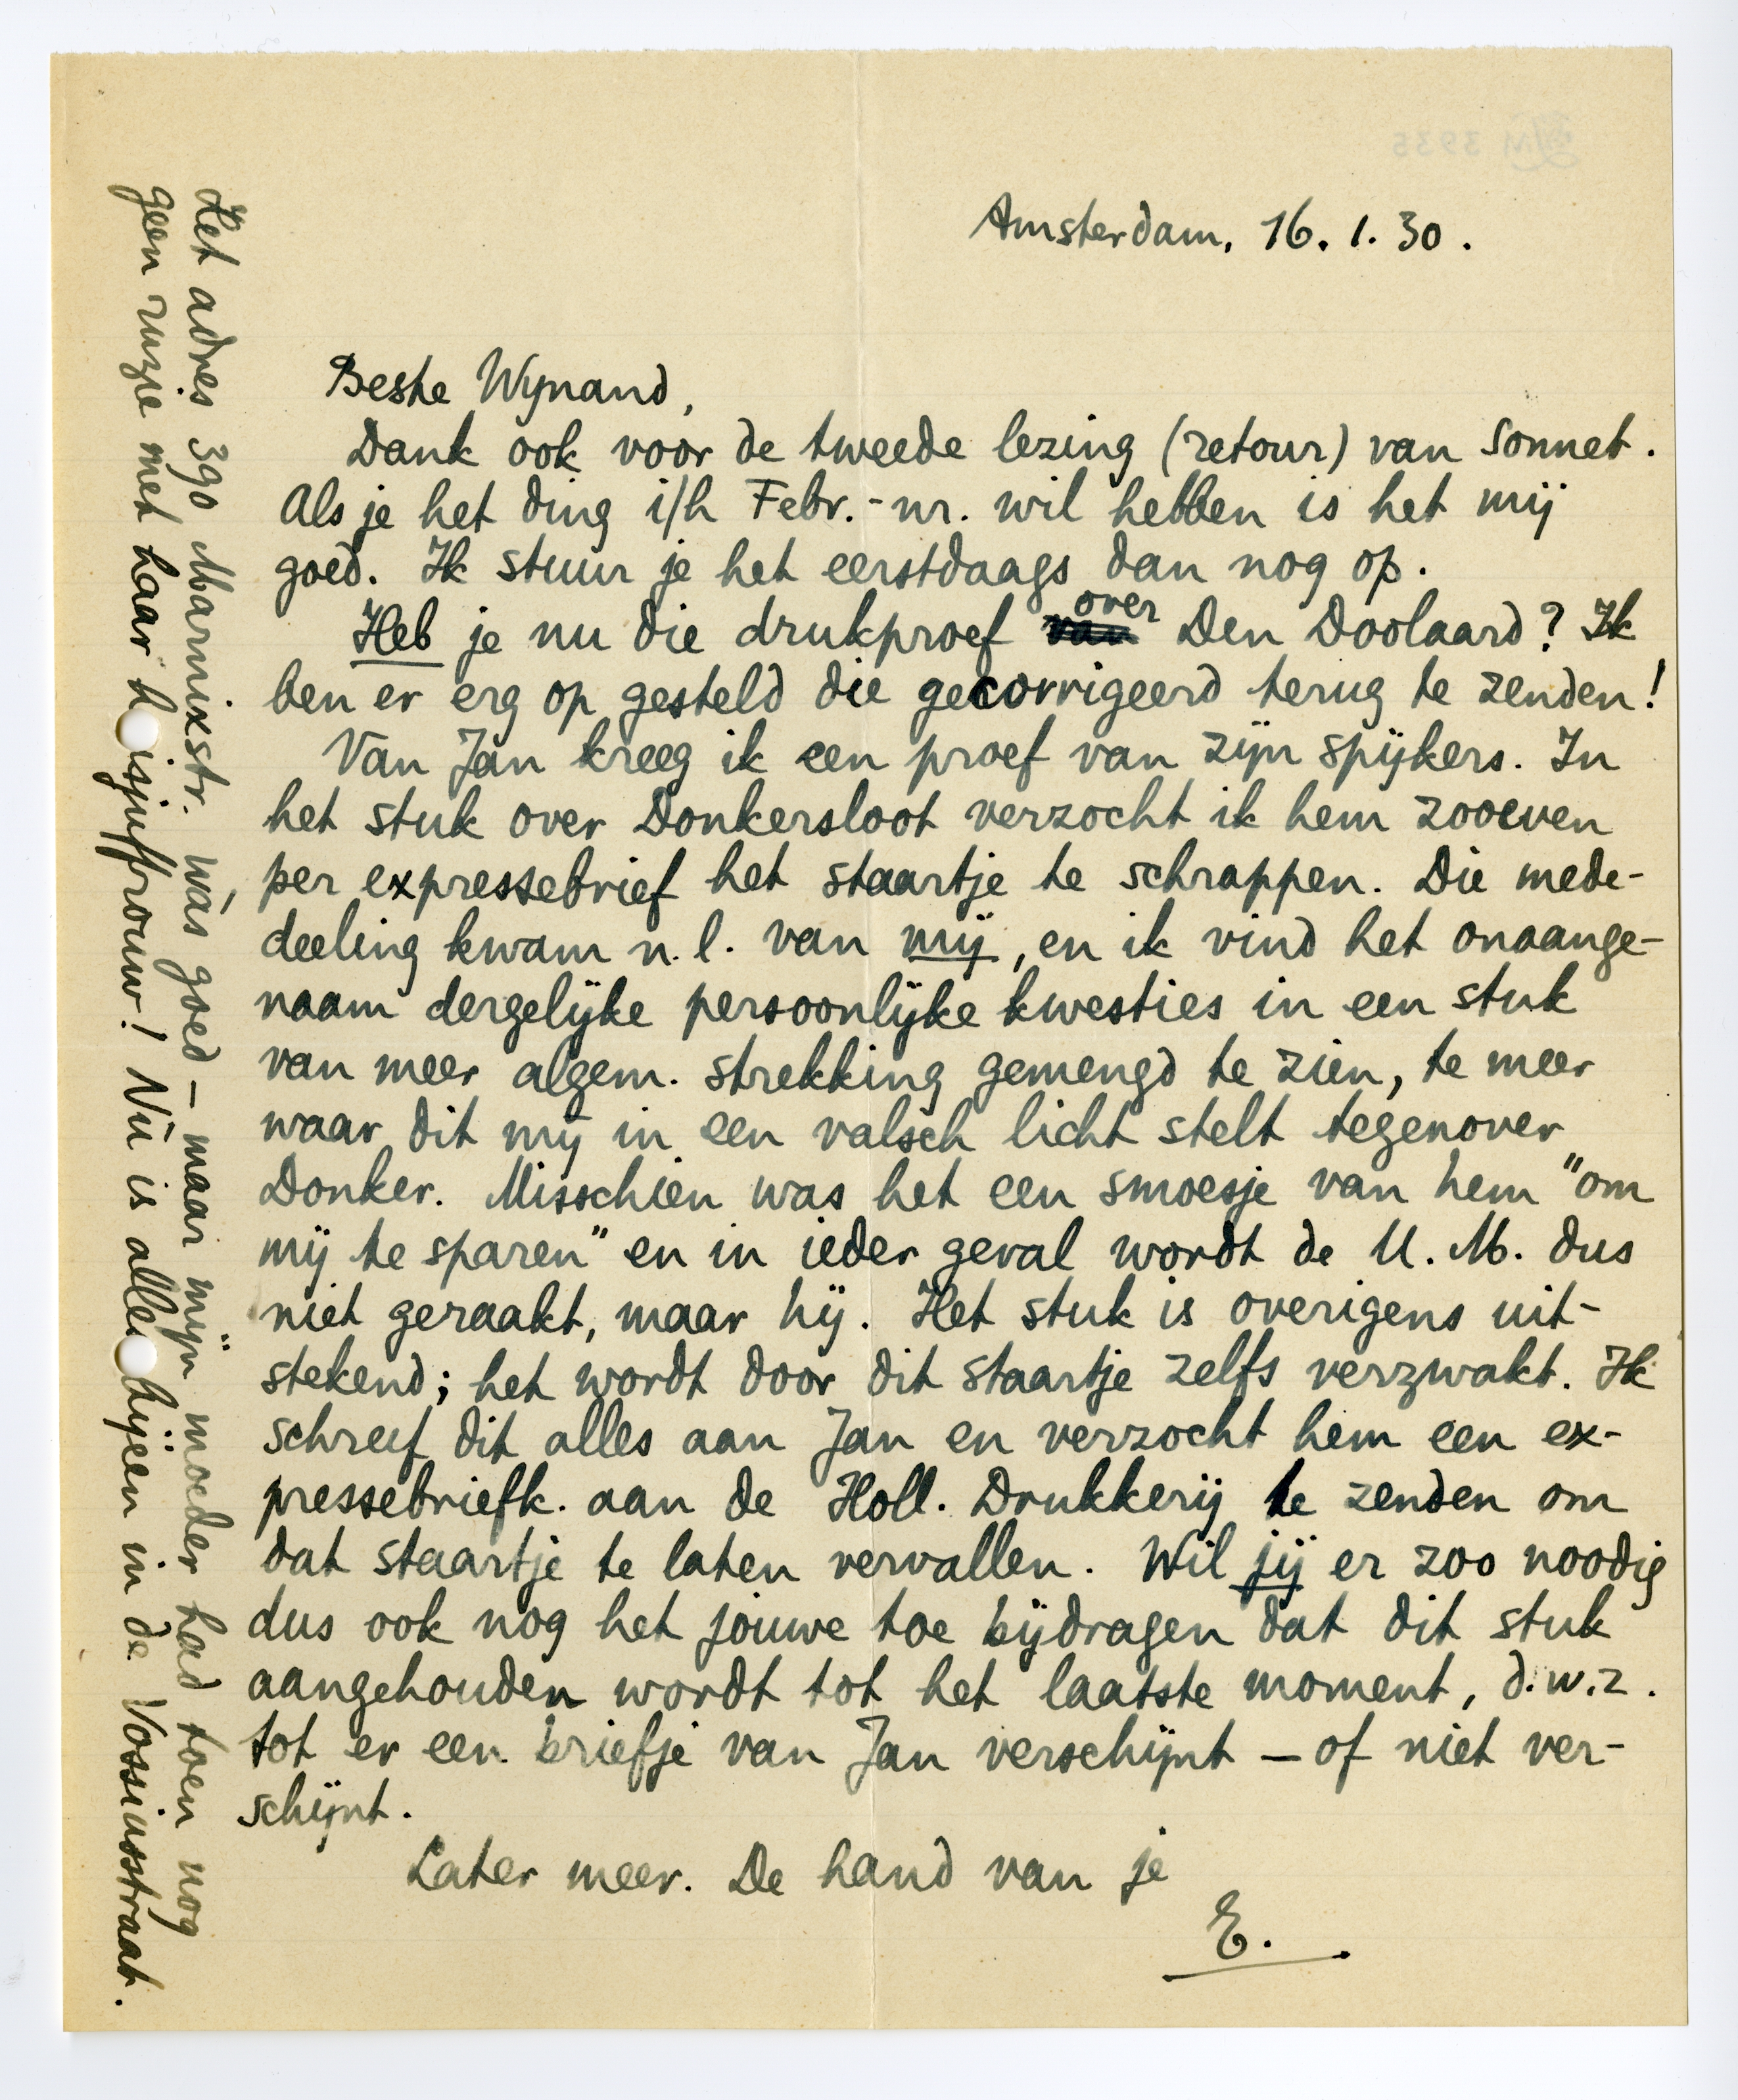 Amsterdam, 16.1.30.
Beste Wijnand,
Dank ook voor de tweede lezing (retour) van Sonnet.
Als je het ding i/h Febr.-nr. wil hebben is het mij
goed. Ik stuur je het eerstdaags dan nog op.
Heb je nu die drukproef van over Den Doolaard? Ik
ben er erg op gesteld die gecorrigeerd terug te zenden!
Van Jan kreeg ik een proef van zijn spijkers. In
het stuk over Donkersloot verzocht ik hem zooeven
per expressebrief het staartje te schrappen. Die mede-
deeling kwam n.l. van mij, en ik vind het onaange-
naam dergelijke persoonlijke kwesties in een stuk
van meer algem. strekking gemengd te zien, te meer
waar dit mij in een valsch licht stelt tegenover
Donker. Misschien was het een smoesje van hem "om
mij te sparen" en in ieder geval wordt de U.M. dus
niet geraakt, maar hij. Het stuk is overigens uit-
stekend; het wordt door dit staartje zelfs verzwakt. Ik
schreef dit alles aan Jan en verzocht hem een ex-
pressebriefk. aan de Holl. Drukkerij te zenden om
dat staartje te laten vervallen. Wil jij er zoo noodig
dus ook nog het jouwe toe bijdragen dat dit stuk
aangehouden wordt tot het laatste moment, d.w.z.
tot er een briefje van Jan verschijnt — of niet ver-
schijnt.
Later meer. De hand van je
E.
Het adres 390 Marnixstr. wás goed — maar mijn moeder had toen nog
geen ruzie met haar h isjuffrouw! Nu is alle bijeen in de Vossiusstraat.